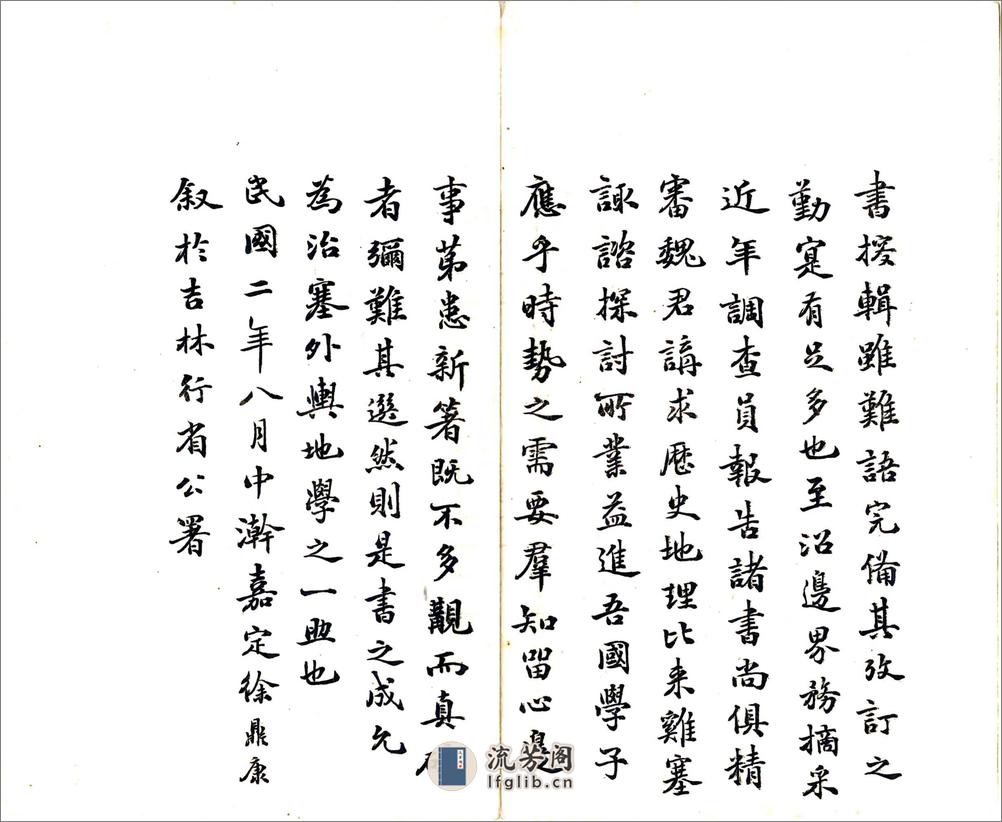 書搜輯雖難語完備其攷訂之
勤寔有足多也至沿邊界務摘采
近年調查員報告諸書尚俱精
審魏君講求歷史地理比来雞塞
諏諮探討所業益進吾國學子
應乎時勢之需要羣知留心邊
事苐患新著既不多觀而真
者彌難其選然則是書之成允
為治塞外輿地學之一助也
民國二年八月中澣嘉定徐鼎康
叙於吉林行省公署
流芳阁
lfglib.cn